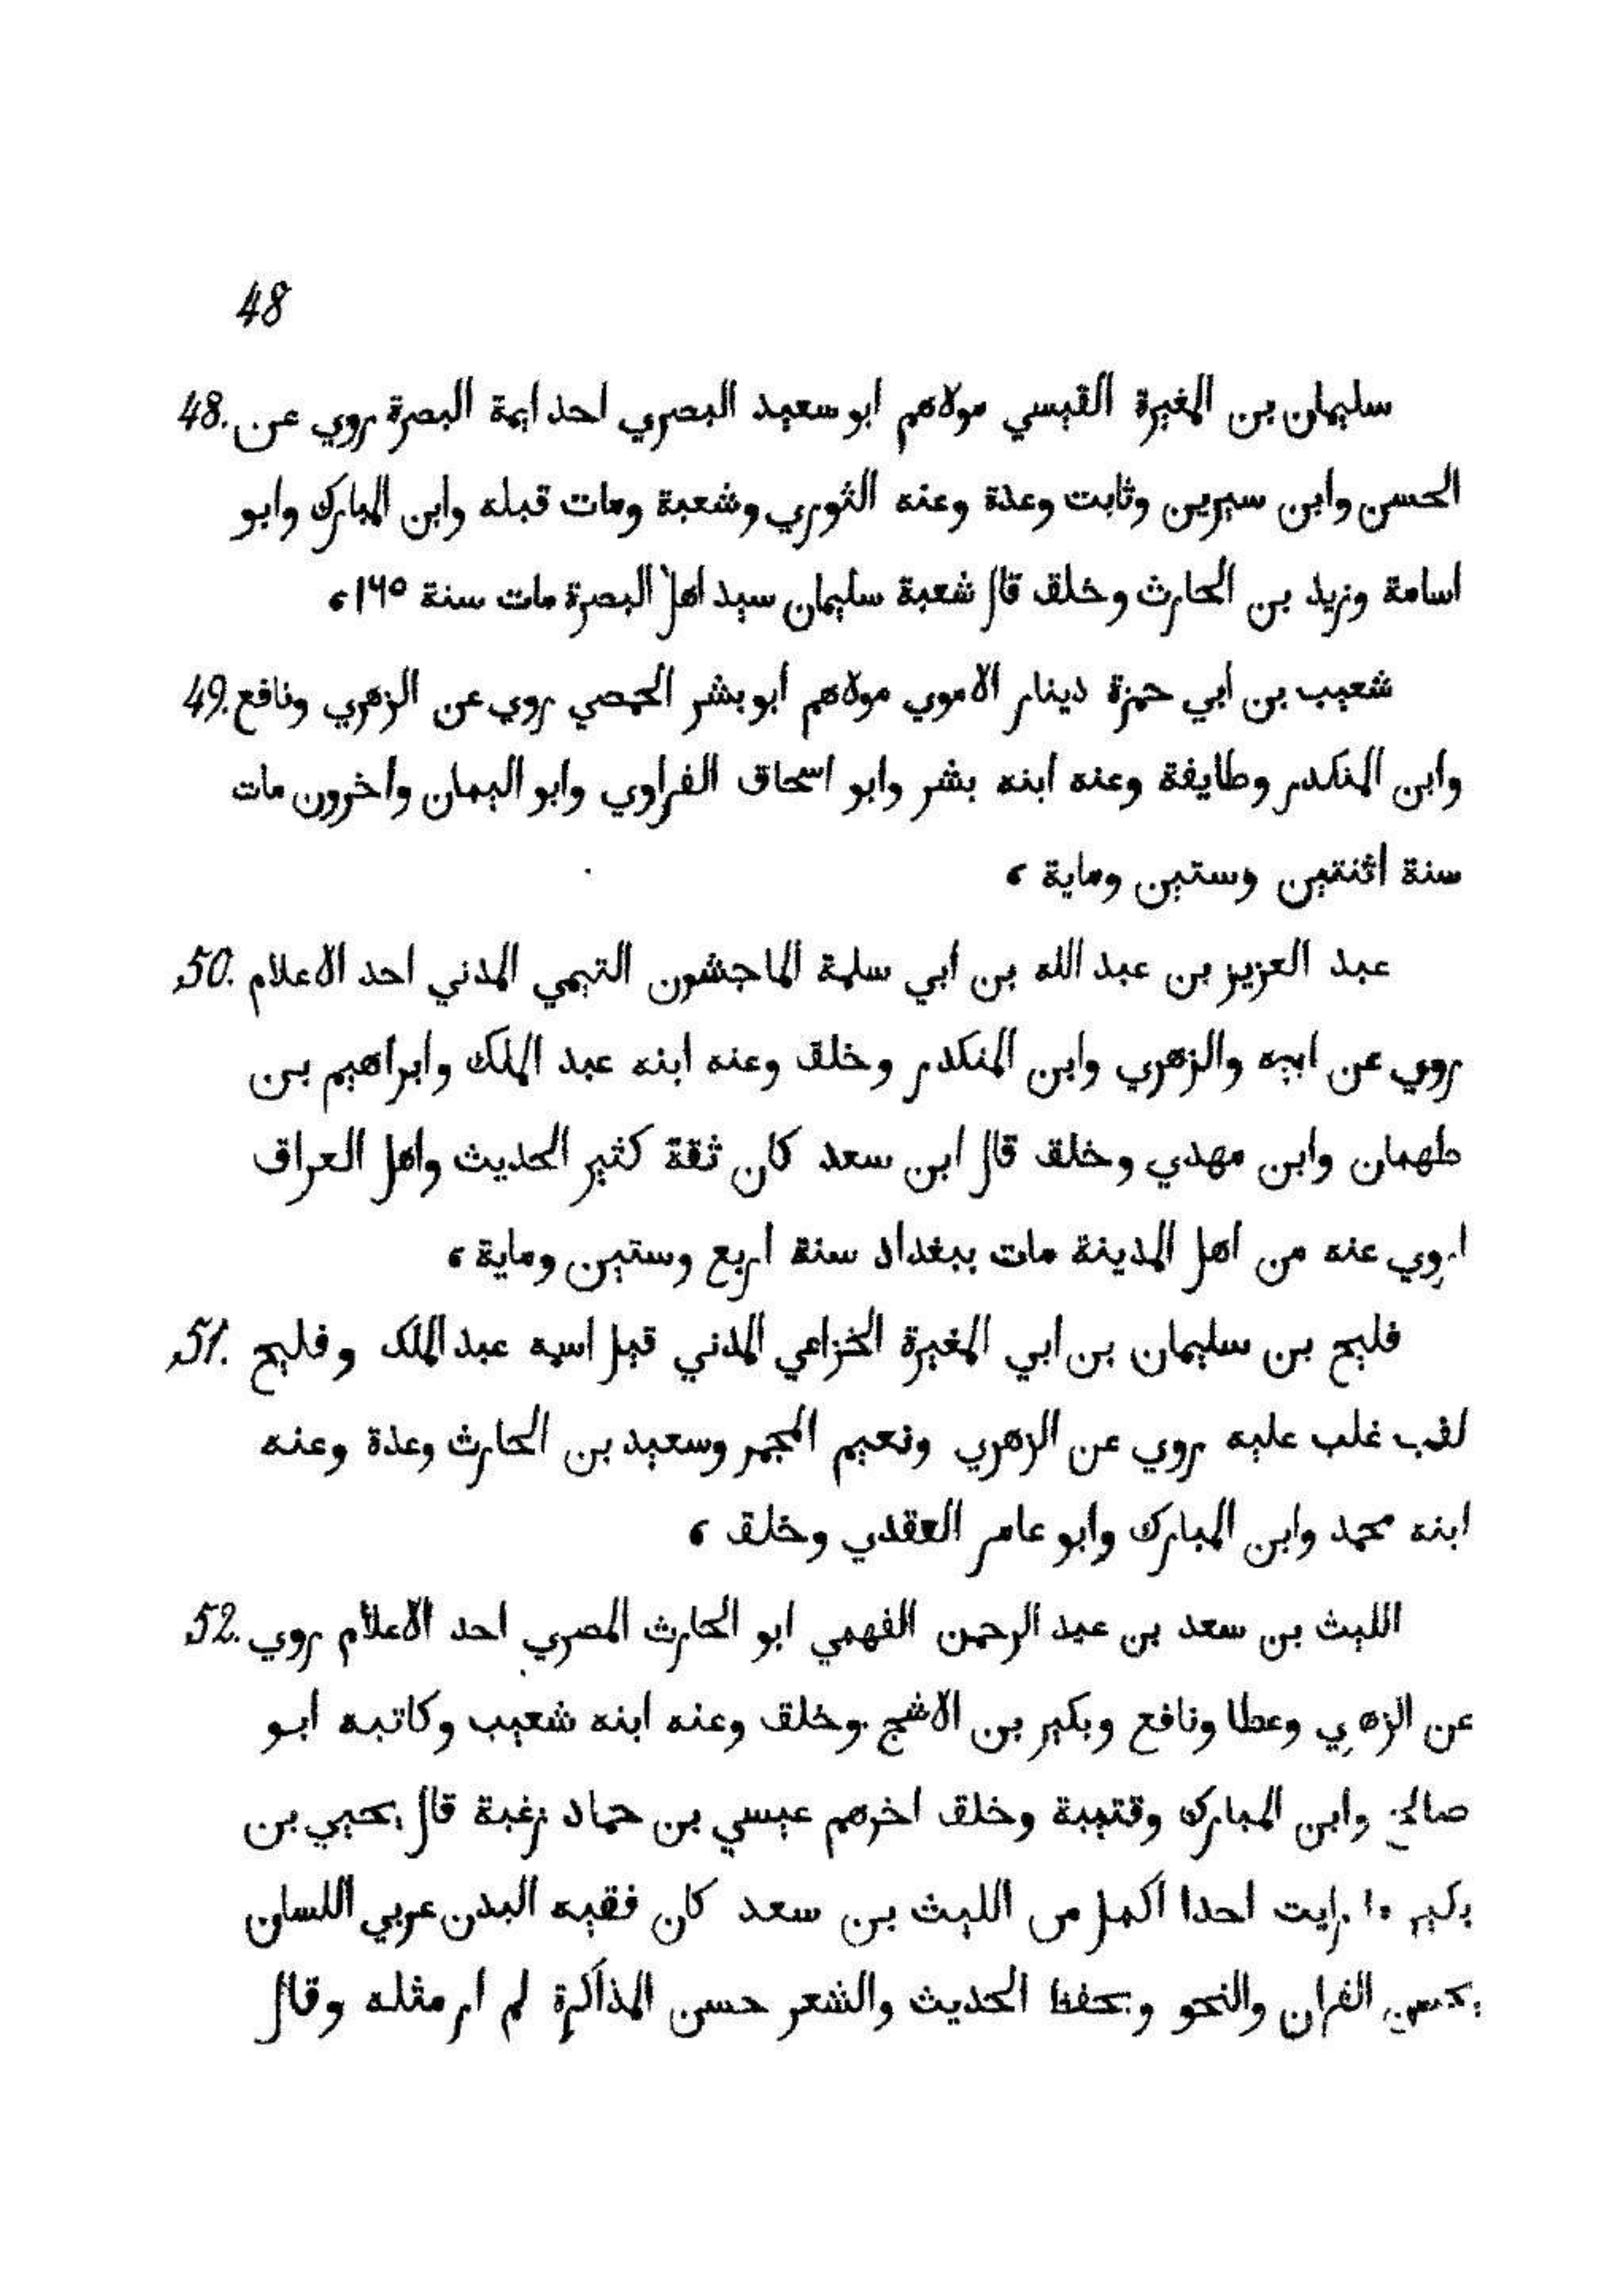 48
48. سليمان بن المغيرة القيسي مولاهم ابو سعيد البصري احد ايمة البصرة روي عن
الحسن وابن سيرين وثابت وعدة وعنه الثوري وشعبة ومات قبله وابن المبارك وابو
اسامة وزيد بن الحارث وخلق قال شعبة سليمان سيد اهل البصرة مات سنة ١٦٥،
49. شعيب بن ابي حمزة دينار الاموي مولاهم ابو بشر الحمصي روي عن الزهري ونافع
وابن المنكدر وطايفة وعنه ابنه بشر وابو اسحاق الفراوي وابو اليمان واخرون مات
سنة اثنتين وستين وماية ،
50. عبد العزيز بن عبد الله بن ابي سلمة الماجشون التيمي المدني احد الاعلام
روي عن ابيه والزهري وابن المنكدر وخلق وعنه ابنه عبد الملك وابراهيم بن
طهمان وابن مهدي وخلق قال ابن سعد كان ثقة كثير الحديث واهل العراق
اروي عنه من اهل المدينة مات ببغداد سنة اربع وستين وماية ،
51. فليح بن سليمان بن ابي المغيرة الخزاعي المدني قيل اسمه عبد الملك وفليح
لقب غلب عليه روي عن الزهري ونعيم المجمر وسعيد بن الحارث وعدة وعنه
ابنه محمد وابن المبارك وابو عامر العقدي وخلق ،
52. الليث بن سعد بن عبد الرحمن الفهمي ابو الحارث المصري احد الاعلام روي
عن الزهري وعطا ونافع وبكير بن الاشج وخلق وعنه ابنه شعيب وكاتبه ابو
صالح وابن المبارك وقتيبة وخلق اخرهم عيسي بن حماد زغبة قال يحيي بن
بكير ما رايت احدا اكمل من الليث بن سعد كان فقيه البدن عربي اللسان
يحسن القران والنحو ويحفظ الحديث والشعر حسن المذاكرة لم ار مثله وقال